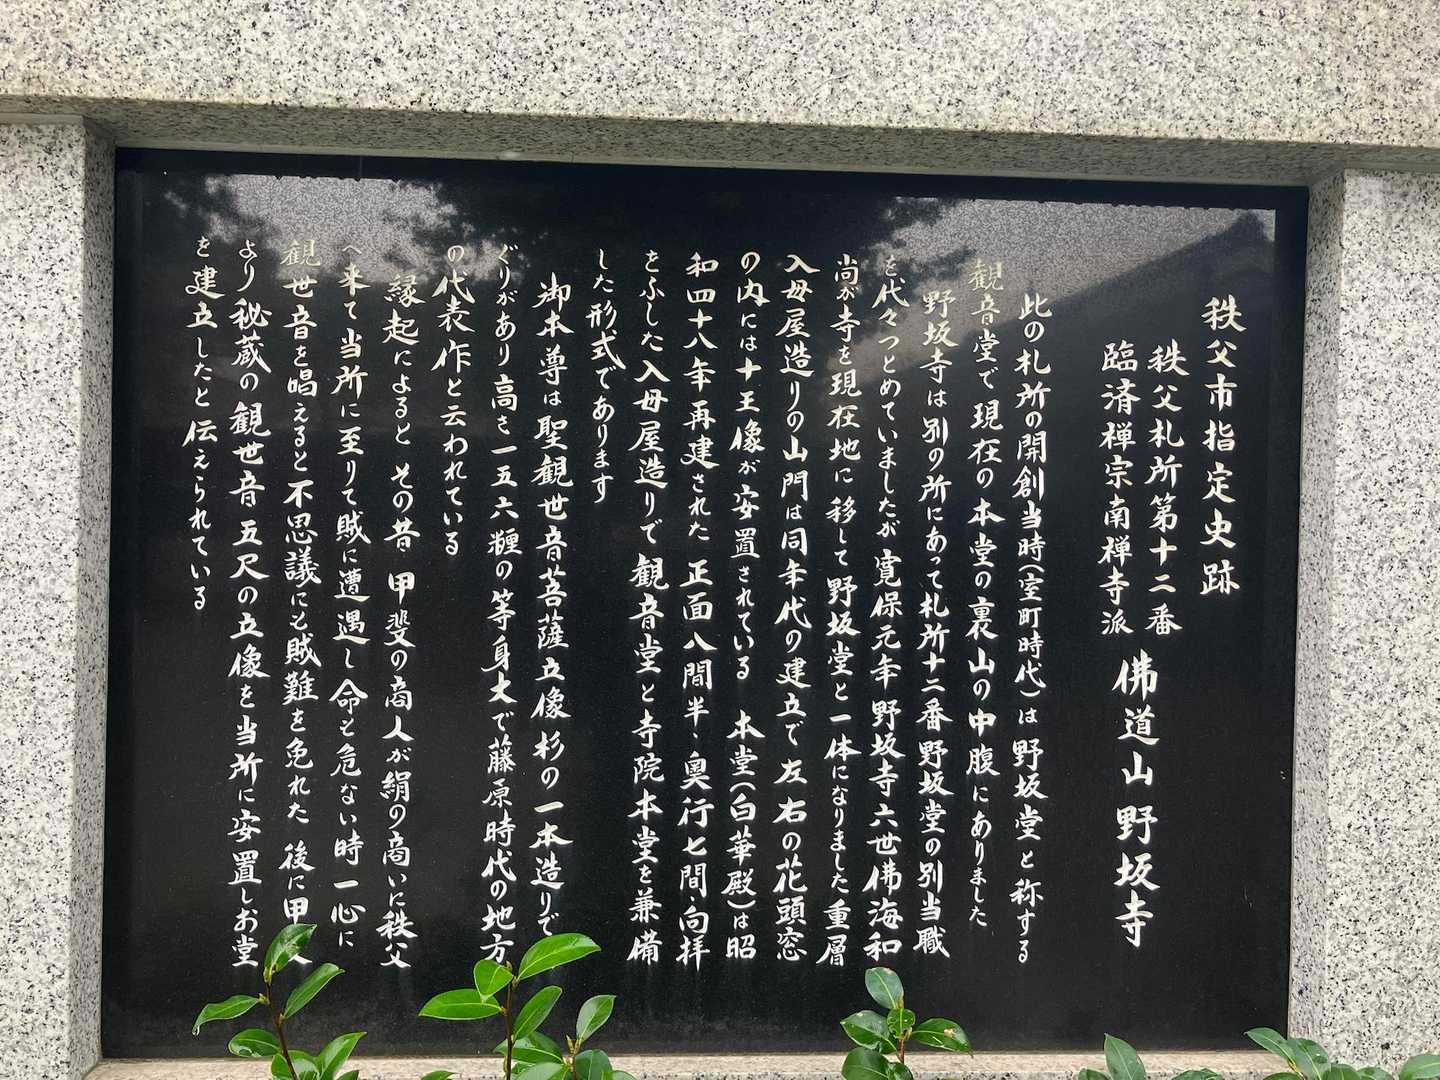 秩父市指定史跡
秩父札所第十二番
臨済禅宗南禅寺派
佛道山 野坂寺
此の札所の開創当時(室町時代)は野坂堂と称する
観音堂で現在の本堂の裏山の中腹にありました
野坂寺は別の所にあって札所十二番野坂堂の別当職
を代々つとめていましたが寛保元年野坂寺六世佛海和
尚が寺を現在地に移して野坂堂と一体になりました重層
入母屋造りの山門は同年代の建立で左右の花頭窓
の内には十王像が安置されている 本堂(白華殿)は昭
和四十八年再建された 正面八間半、奥行七間、向拝
をふした入母屋造りで観音堂と寺院本堂を兼備
した形式であります
御本尊は聖観世音菩薩立像杉の一本造りで
ぐりがあり高さ一五六糎の等身大で藤原時代の地方
の代表作と云われている
縁起によると その昔 甲斐の商人が絹の商いに秩父
へ来て当所に至りて賊に遭遇し命も危ない時一心に
観世音を唱えると不思議にも賊難を免れた 後に甲
より秘蔵の観世音五尺の立像を当所に安置しお堂
を建立したと伝えられている